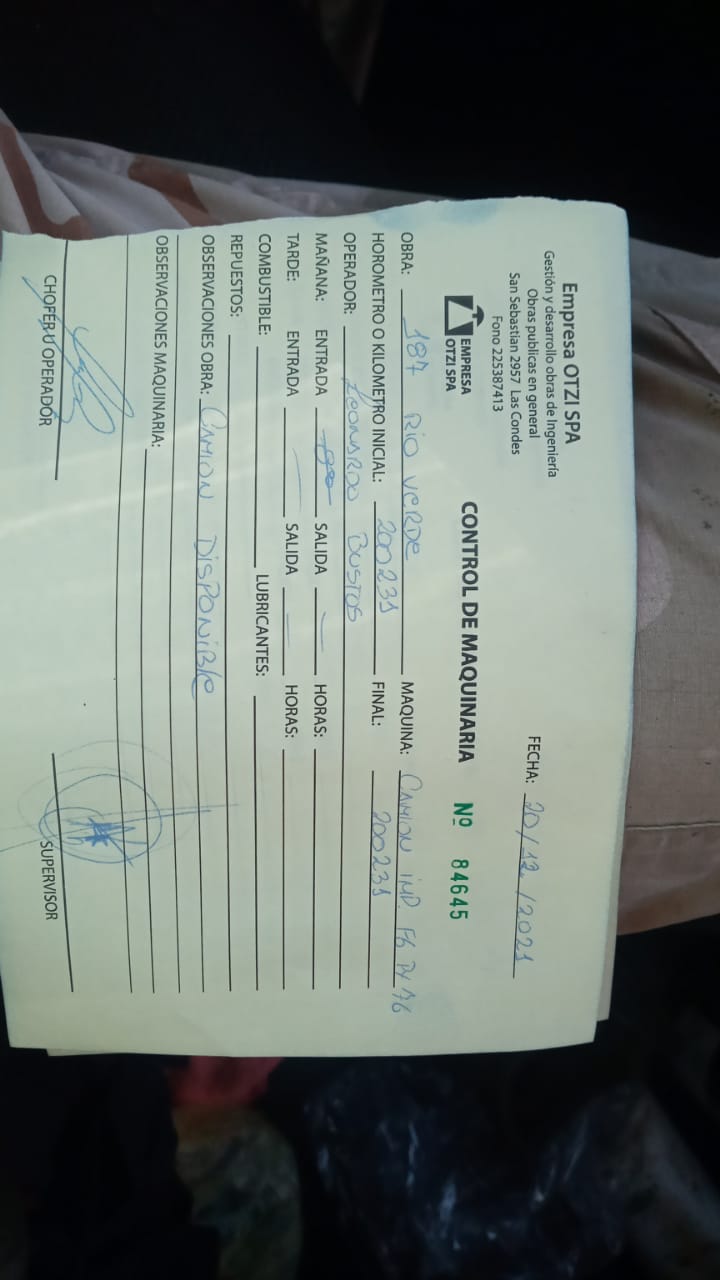 Empresa OTZI SPA
Gestión y desarrollo obras de Ingeniería
Obras publicas en general
San Sebastian 2957 Las Condes
Fono 225387413
EMPRESA
OTZI SPA
FECHA: 20/12./2021
CONTROL DE MAQUINARIA Nº 84645
OBRA: 187 RIO VERDE MAQUINA: CAMION IMP.
HOROMETRO O KILOMETRO INICIAL: 200231 FINAL: 200231
OPERADOR: LEONARDO BUSTOS
MAÑANA: ENTRADA SALIDA — HORAS:
TARDE: ENTRADA — SALIDA — HORAS:
COMBUSTIBLE: LUBRICANTES:
REPUESTOS:
OBSERVACIONES OBRA: CAMION DISPONIBLE
OBSERVACIONES MAQUINARIA:
CHOFER U OPERADOR SUPERVISOR